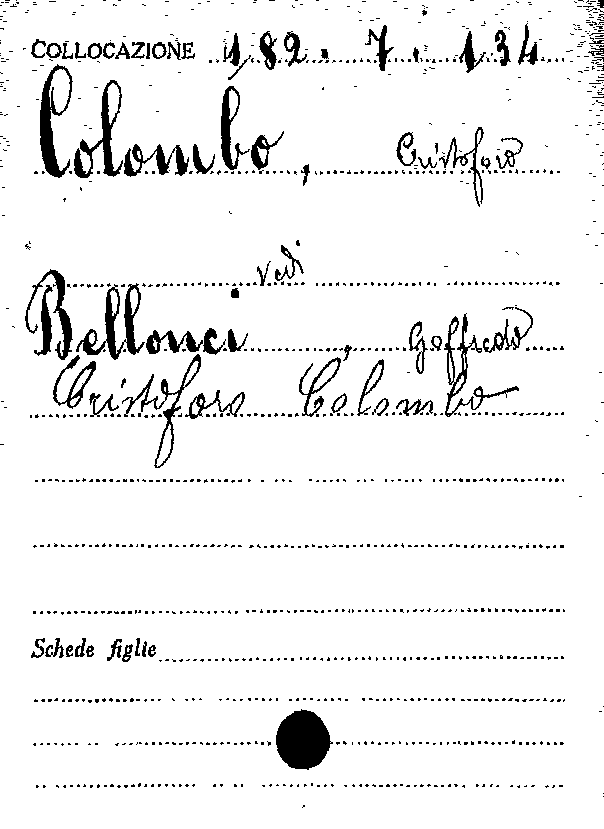 COLLOCAZIONE 182.7.134
Colombo, Cristoforo
Vedi
Bellonci, Goffredo
Cristoforo Colombo
Schede figlie